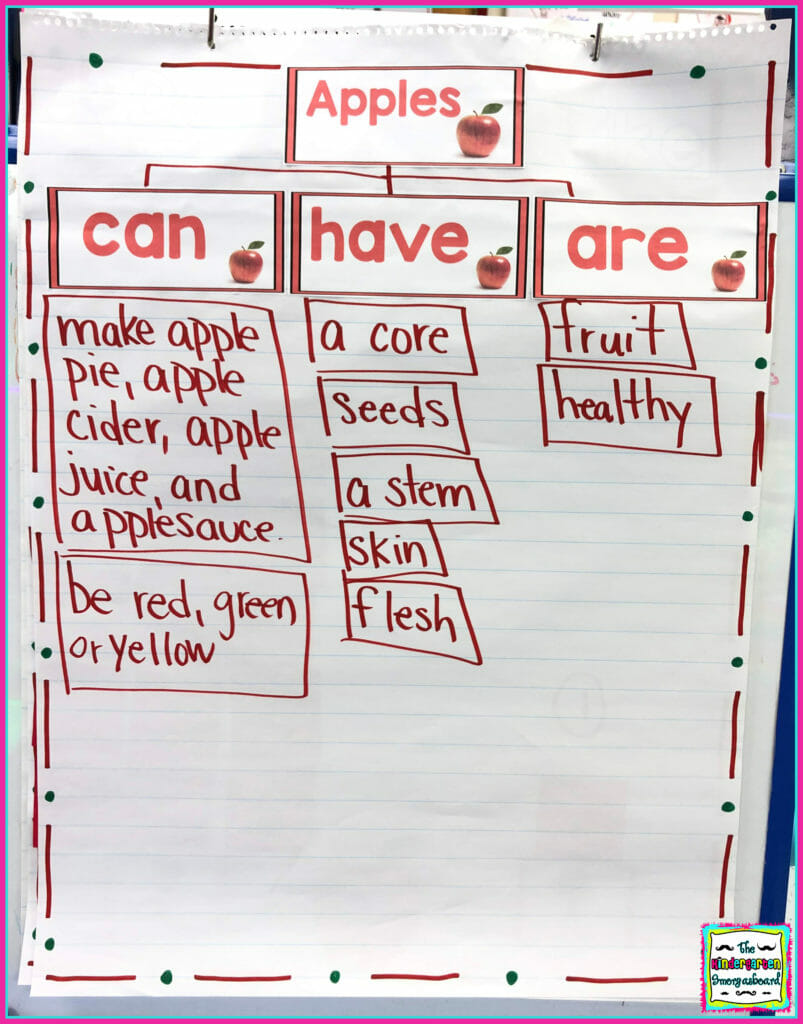 Apples
can
have
are
make apple
pie, apple
cider, apple
juice, and
applesauce.
be red, green
or yellow
a core
seeds
a stem
skin
flesh
fruit
healthy
The
Kindergarten
Smorgasboard